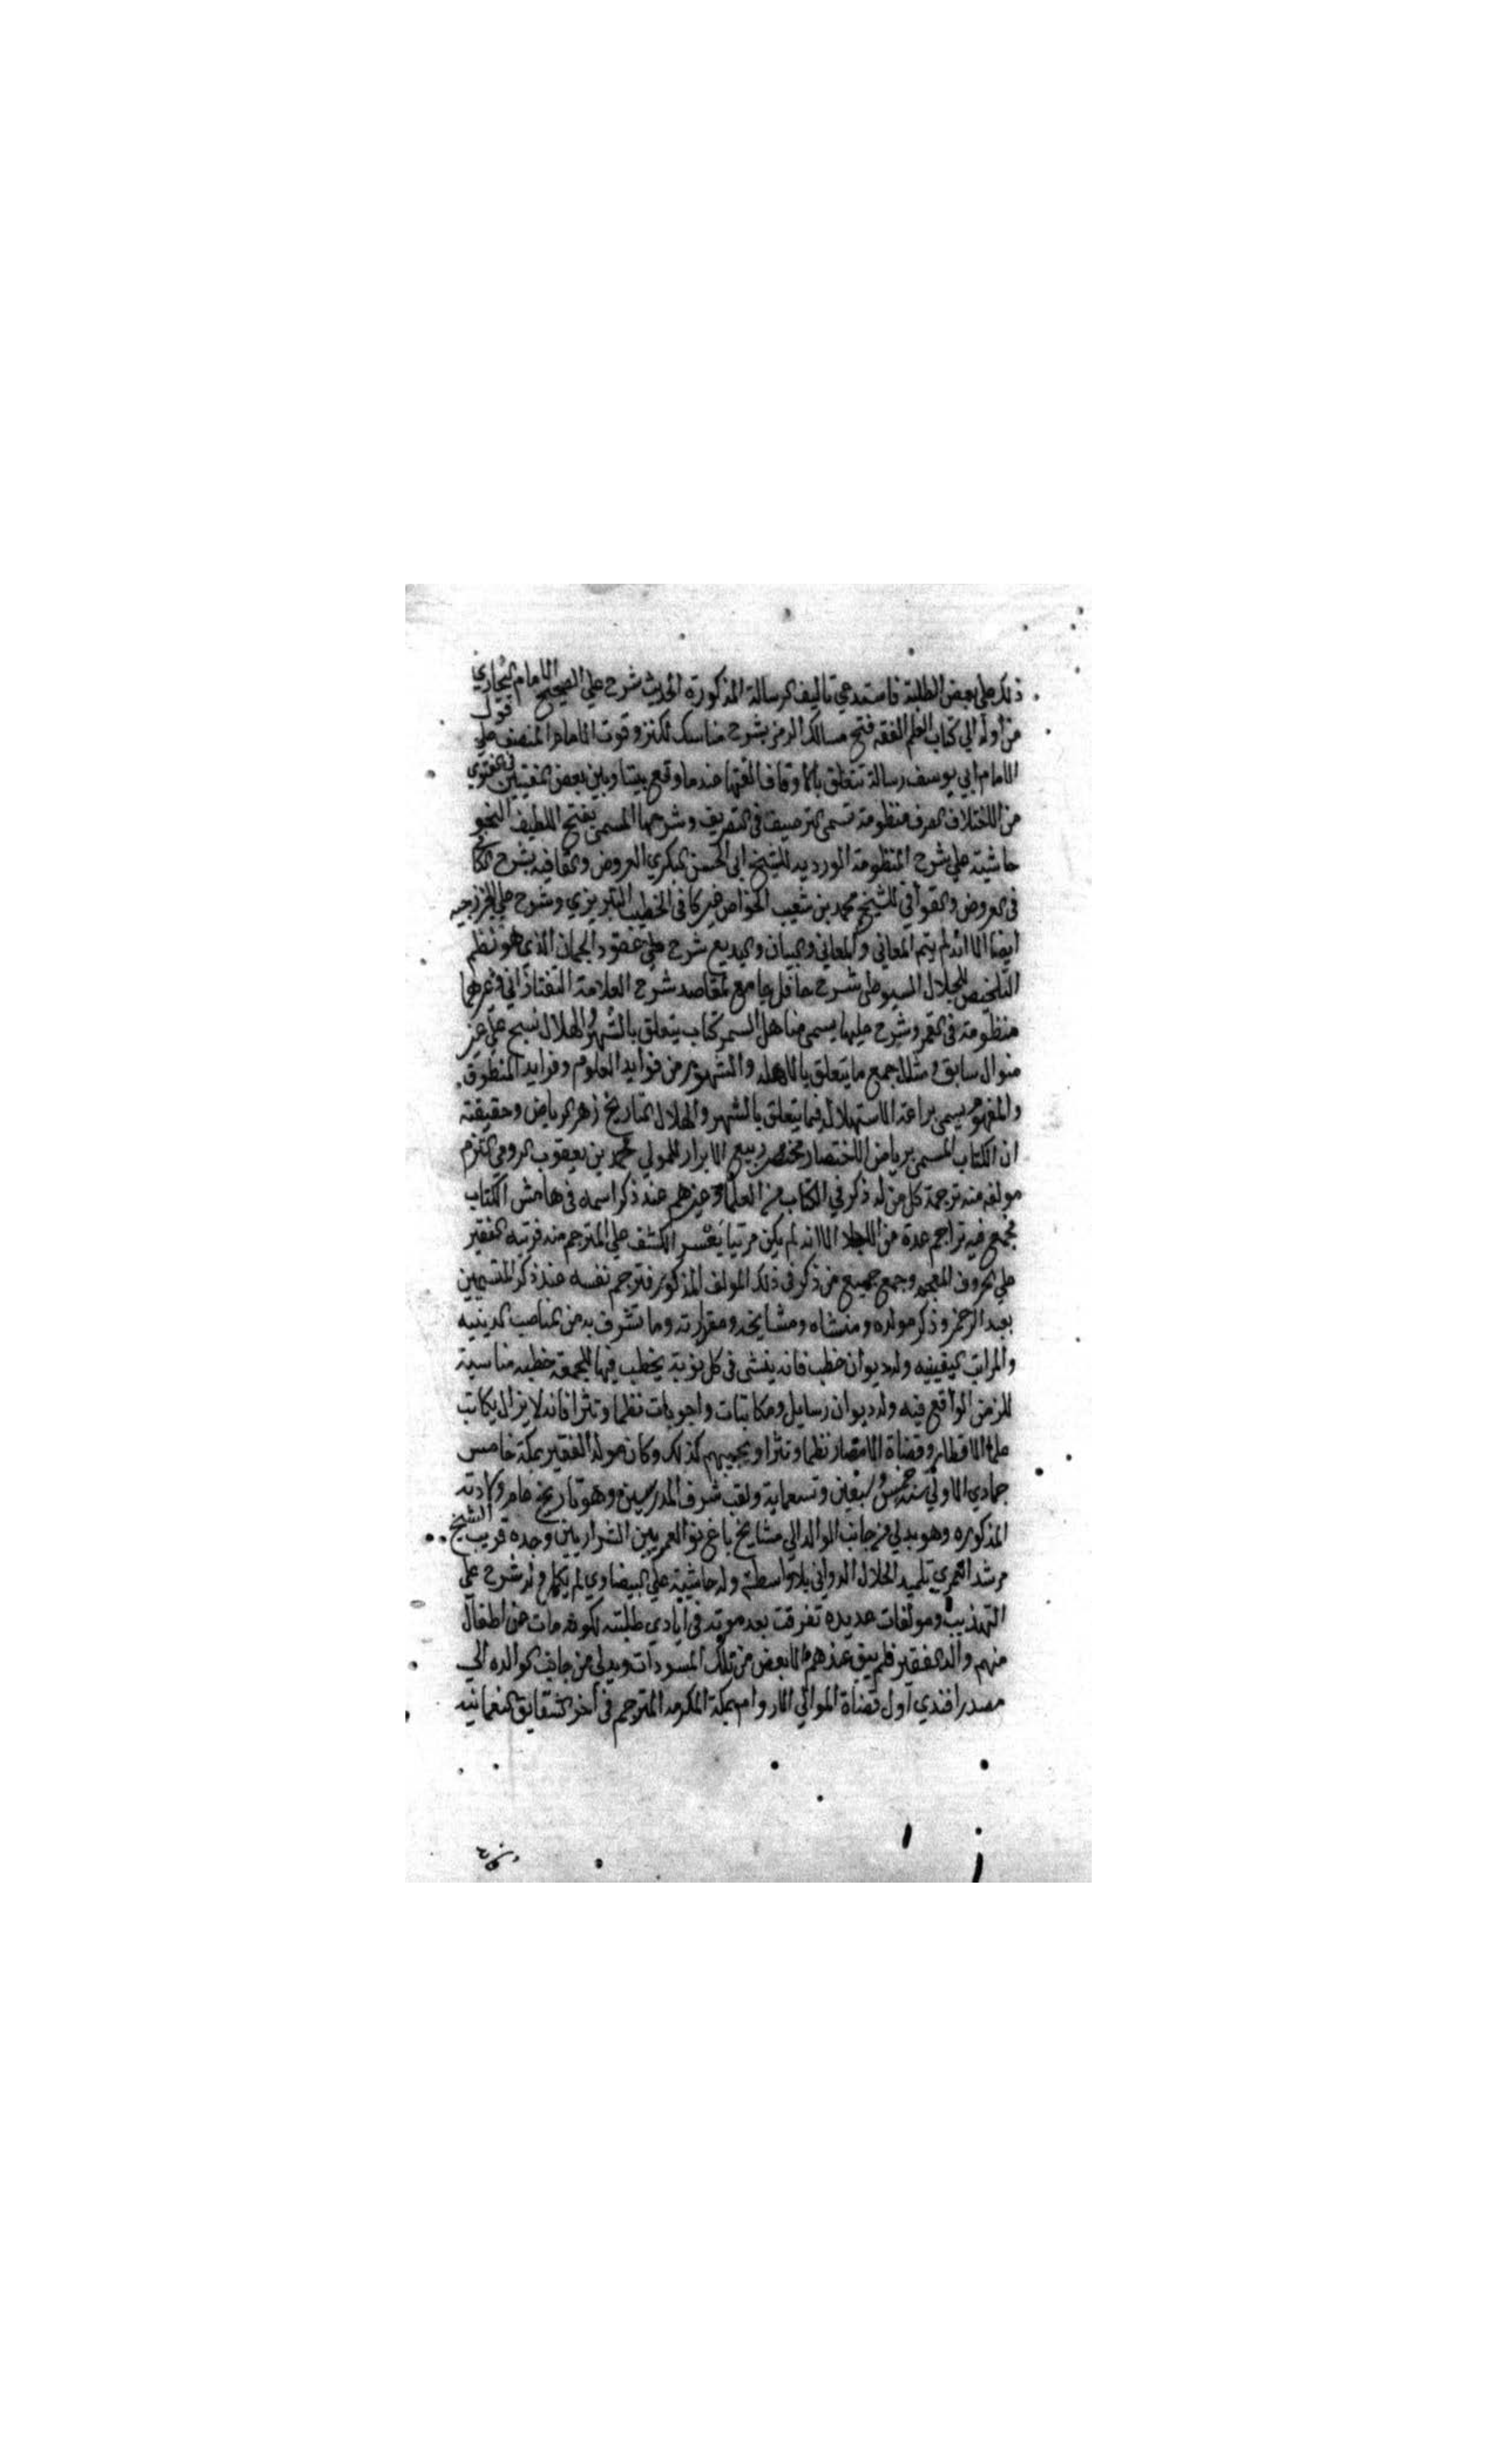 ذلك على بعض الطلبة فاستدعي تاليف الرسالة المذكورة الحديث شرح علي الصحيح الامام البخاري
من اوله الي كتاب العلم الفقه فتح مسالك الرمز بشرح مناسك الكنز وقوت الامام المنصف علي قول
الامام ابي يوسف رسالة تتعلق بالاوقاف الفتها عندما وقع بيننا وبين بعض المفتيين في الفتوي
من الاختلاف الصرف منظومة تسمي الترصيف في التصريف وشرحها المسمي بفتح اللطيف النحو
حاشية علي شرح المنظومة الوردية للشيخ ابي الحسن البكري العروض والقافيه بشرح الكا
في العروض والقوافي للشيخ محمد بن شعيب الخواص غير كافي الخطيب التبريزي وشرح علي الخزرجيه
ايضا الا انه لم يتم المعاني والمعاني والبيان والبديع شرح علي عقود الجمان الذي هو نظم
التلخيص للجلال السيوطي شرح حافل جامع لمقاصد شرح العلامة التفتازاني وغيرها
منظومة في القمر وشرح عليها يسمي مناهل السمر كتاب يتعلق بالشهر والهلال نسج علي غير
منوال سابق ومثال جمع ما يتعلق بالاهله والشهور من فوايد العلوم وفرايد المنطوق
والمفهوم يسمي براعة الاستهلال فيما يتعلق بالشهر والهلال التاريخ زهر الرياض وحقيقته
ان الكتاب المسمي برياض الاختصار مختصر ربيع الابرار للمولي محمد بن يعقوب الرومي التزم
مولفه منه ترجمة كل من له ذكر في الكتاب من العلما وغيرهم عند ذكر اسمه في هامش الكتاب
فجمع فيه تراجم عدة من الا انه لم يكن مرتبا يعسر الكشف علي المترجم منه فرتبه الفقير
علي حروف المعجم وجمع جميع من ذكر في ذلك المولف المذكور فترجم نفسه عند ذكر المتسمين
بعبد الرحمن وذكر مولده ومنشاه ومشايخه ومقراته وما تشرف به من المناصب الدينيه
والمراتب اليقينيه وله ديوان خطب فانه ينشي في كل نوبة يخطب فيها للجمعة خطبه مناسبة
للزمن الواقع فيه وله ديوان رسايل ومكاتبات واجوبات نظما ونثرا فانه لا يزال يكاتب
علما الاقطار وقضاة الامصار نظما ونثرا ويجيبهم كذلك وكان مولد الفقير بمكة خامس
جمادي الاولي سنة خمس وسبعين وتسعماية ولقب شرف المدرسين وهو تاريخ عام ولادته
المذكوره وهو يدلي من جانب الوالد الي مشايخ باغ نو العمريين الشيرازيين وجده قريب الشيخ
مرشد العمري تلميذ الجلال الدواني بلا واسطة وله حاشية علي البيضاوي لم يكمل وله شرح علي
التهذيب ومولفات عديده تفرقت بعد موته في ايادي طلبته لكونه مات عن اطفال
منهم والد الفقير فلم يبق عندهم الا بعض من تلك المسودات ويدلي من جانب الوالده الي
مصدر افندي اول قضاة الموالي الاروام بمكة المكرمه المترجم في اخر الشقايق النعمانيه